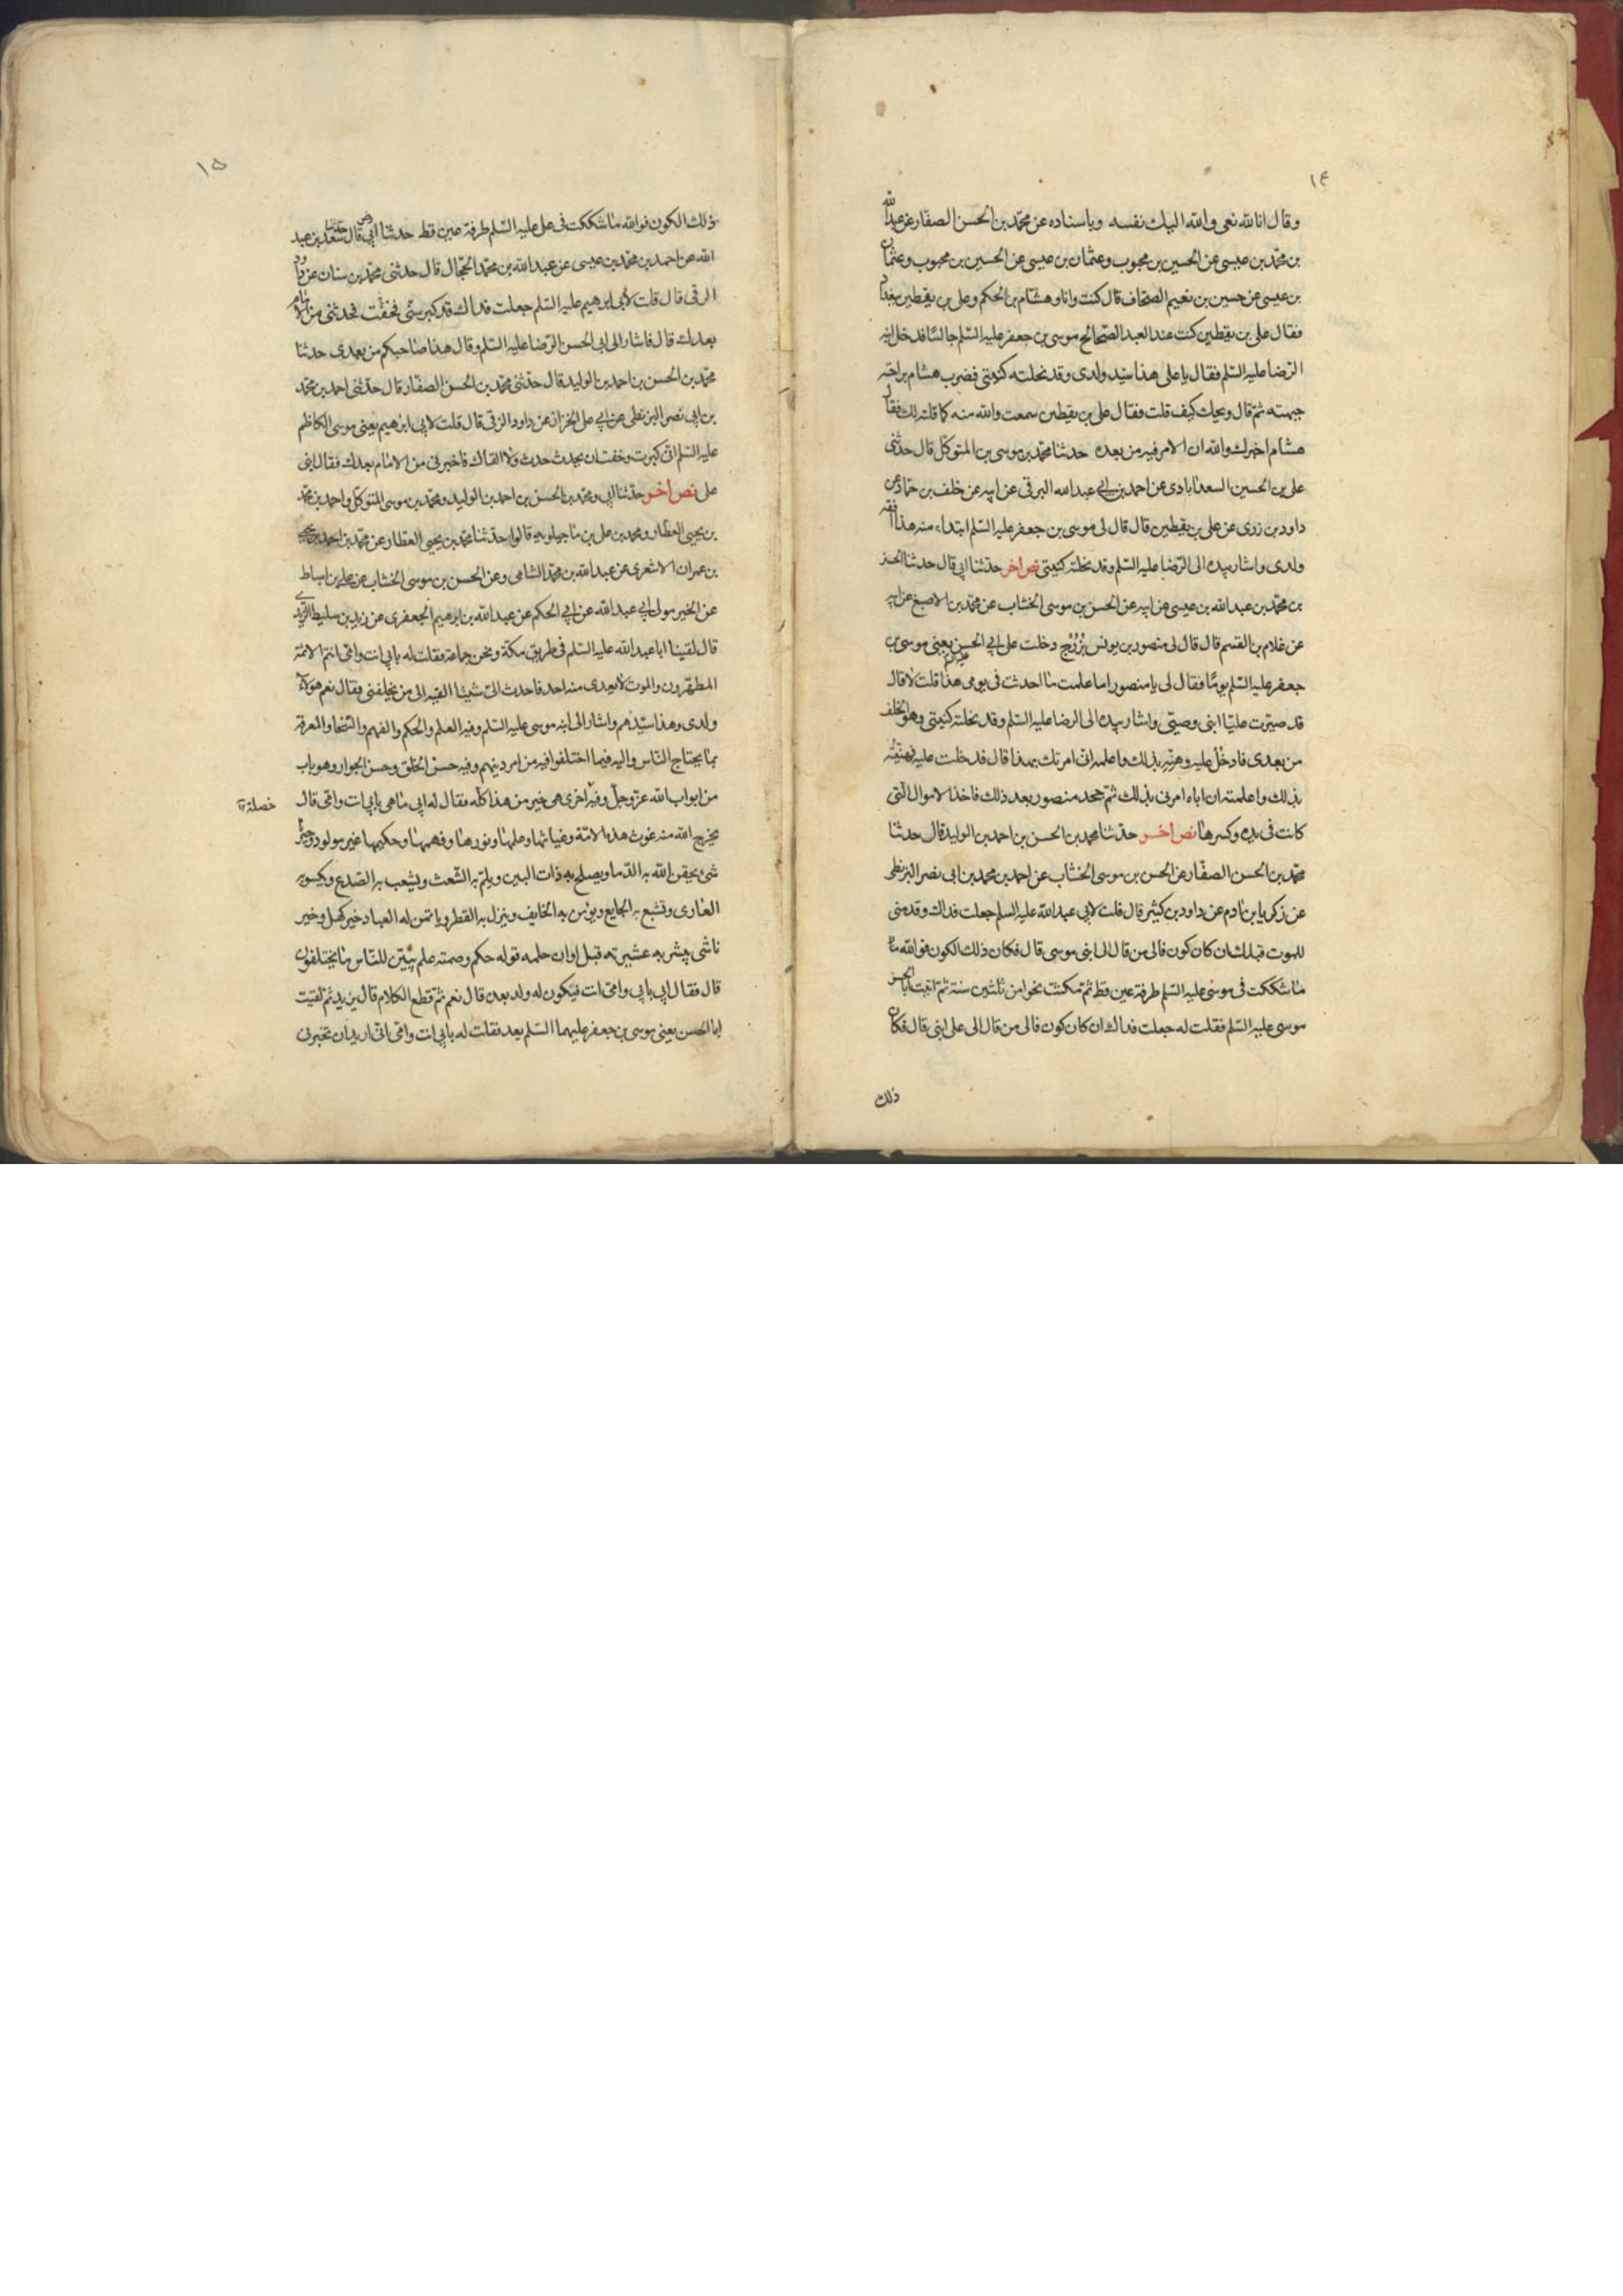 ١٤
وقال انا لله نعى والله اليك نفسه وباسناده عن محمد بن الحسن الصفار عن عبد الله
بن محمد بن عيسى عن الحسين بن محبوب وعثمان بن عيسى عن الحسين بن محبوب وعثمان
بن عيسى عن حسين بن نعيم الصحاف قال كنت وانا وهشام بن الحكم وعلى بن يقطين ببغداد
فقال على بن يقطين كنت عند العبد الصالح موسى بن جعفر عليه السلم جالسا فدخل ابنه
الرضا عليه السلم فقال يا على هذا سيد ولدى وقد نحلته كنيتى فضرب هشام براحته
جبهته ثم قال ويحك كيف قلت فقال على بن يقطين سمعت والله منه كما قلته لك فقال
هشام اخبرك والله ان الامر فيه من بعده حدثنا محمد بن موسى بن المتوكل قال حدثنى
على بن الحسين السعدابادى عن احمد بن ابى عبد الله البرقى عن ابيه عن خلف بن حماد عن
داود بن زربى عن على بن يقطين قال قال لى موسى بن جعفر عليه السلم ابتداء منه هذا افقه
ولدى واشار بيده الى الرضا عليه السلم وقد نحلته كنيتى نص اخر حدثنا ابى قال حدثنا الحسن
بن محمد بن عبد الله بن عيسى عن ابيه عن الحسن بن موسى الخشاب عن محمد بن الاصبغ عن ابيه
عن غلام بن القسم قال قال لى منصور بن يونس بزرج دخلت على ابى الحسن يعنى موسى بن
جعفر عليه السلم يوما فقال لى يا منصور اما علمت ما احدثت فى يومى هذا قلت لا قال
قد صيرت عليا ابنى وصيتى واشار بيده الى الرضا عليه السلم وقد نحلته كنيتى وهو الخلف
من بعدى فادخل عليه وهنئه بذلك واعلمه انى امرتك بهذا قال فدخلت عليه فهنئته
بذلك واعلمته ان اباه امرنى بذلك ثم جحد منصور بعد ذلك فاخذ الاموال التى
كانت فى يده وكسرها نص اخر حدثنا محمد بن الحسن بن احمد بن الوليد قال حدثنا
محمد بن الحسن الصفار عن الحسن بن موسى الخشاب عن احمد بن محمد بن ابى نصر البزنطى
عن زكريا بن ادم عن داود بن كثير قال قلت لابى عبد الله عليه السلم جعلت فداك وقدمنى
للموت قبلك ان كان كون فالى من قال الى ابنى موسى قال فكان ذلك الكون فوالله ما
ما شككت فى موسى عليه السلم طرفة عين قط ثم مكثت نحوا من ثلثين سنة ثم اتيت ابا الحسن
موسى عليه السلم فقلت له جعلت فداك ان كان كون فالى من قال الى على ابنى قال فكان
ذلك
١٥
ذلك الكون فوالله ما شككت فى على عليه السلم طرفة عين قط حدثنا ابى قال حدثنا سعد بن عبد
الله عن احمد بن محمد بن عيسى عن عبد الله بن محمد الحجال قال حدثنى محمد بن سنان عن داود
الرقى قال قلت لابى ابرهيم عليه السلم جعلت فداك قد كبر سنى فخفت فحدثنى من الامام
بعدك قال فاشار الى ابى الحسن الرضا عليه السلم وقال هذا صاحبكم من بعدى حدثنا
محمد بن الحسن بن احمد بن الوليد قال حدثنى محمد بن الحسن الصفار قال حدثنى احمد بن محمد
بن ابى نصر البزنطى عن ابى على الخزاز عن داود الرقى قال قلت لابى ابرهيم يعنى موسى الكاظم
عليه السلم انى كبرت وخفت ان يحدث حدث ولا القاك فاخبرنى من الامام بعدك فقال ابنى
على نص اخر حدثنا ابى ومحمد بن الحسن بن احمد بن الوليد ومحمد بن موسى المتوكل واحمد بن محمد
بن يحيى العطار ومحمد بن على بن ماجيلويه قالوا حدثنا محمد بن يحيى العطار عن محمد بن احمد بن يحيى
بن عمران الاشعرى عن عبد الله بن محمد الشامى وعن الحسن بن موسى الخشاب عن على بن اسباط
عن الخير مولى ابى عبد الله عن ابى الحكم عن عبد الله بن ابرهيم الجعفرى عن زيد بن سليط الزيدى
قال لقينا ابا عبد الله عليه السلم فى طريق مكة ونحن جماعة فقلت له بابى انت وامى انتم الائمة
المطهرون والموت لا يعرى منه احد فاحدث الى شيئا القيه الى من يخلفنى فقال نعم هؤلاء
ولدى وهذا سيدهم واشار الى ابنه موسى عليه السلم وفيه العلم والحكم والفهم والسخا والمعرفة
بما يحتاج الناس واليه فيما اختلفوا فيه من امر دينهم وفيه حسن الخلق وحسن الجوار وهو باب
من ابواب الله عز وجل وفيه اخرى هى خير من هذا كله فقال له ابى ما هى بابى انت وامى قال
خصلة
يخرج الله منه غوث هذه الامة وغياثها وعلمها ونورها وفهمها وحكيمها غير مولود وخير
شئ يحقن الله به الدما ويصلح به ذات البين ويلم به الشعث ويشعب به الصدع ويكسو به
العارى ويشبع به الجايع ويؤمن به الخايف وينزل به القطر وياتمن له العباد خير كهل وخير
ناشئ يبشر به عشيرته قبل اوان حلمه قوله حكم وصمته علم يبين للناس ما يختلفون
قال فقال ابى بابى وامى انت فيكون له ولد بعد قال نعم ثم قطع الكلام قال يزيد ثم لقيت
ابا الحسن يعنى موسى بن جعفر عليهما السلم بعد فقلت له بابى انت وامى انى اريد ان تخبرنى